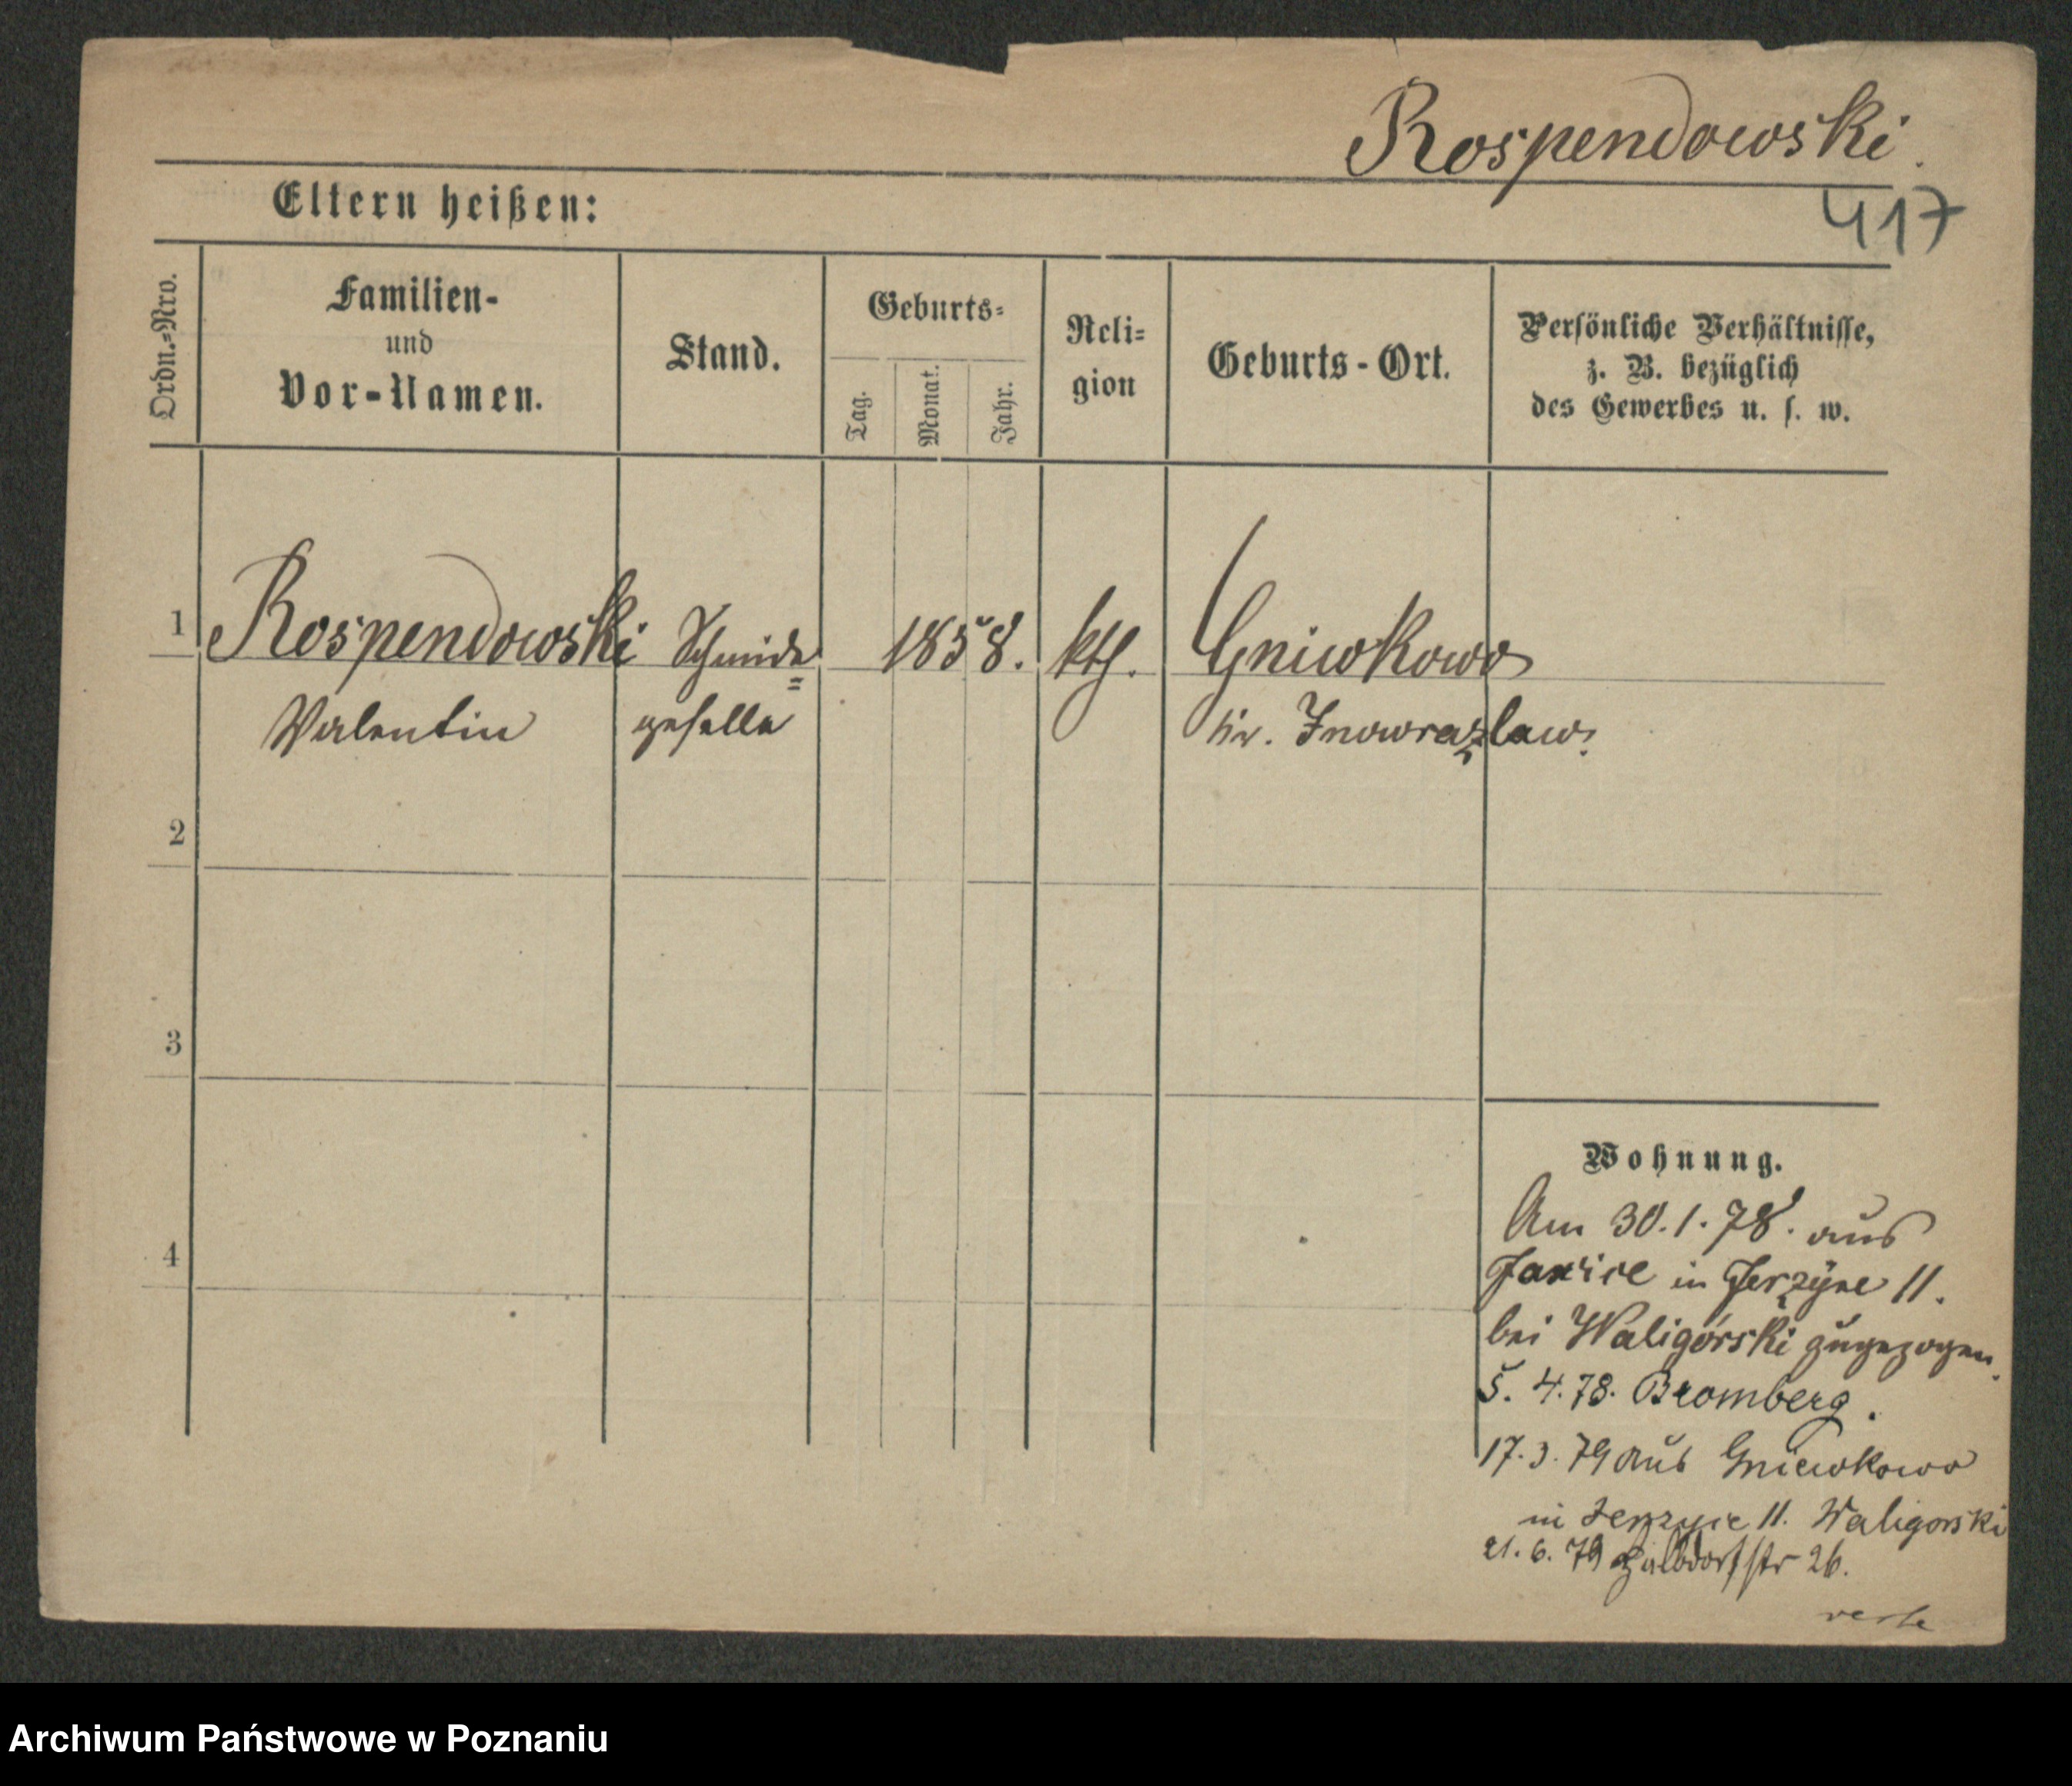 Rospendowski.
417
Eltern heißen:
Ordn.=Nro.
Familien-
und
Vor-Namen.
Stand.
Geburts=
Tag.
Monat.
Jahr.
Reli=
gion
Geburts-Ort.
Persönliche Verhältnisse,
z. B. bezüglich
des Gewerbes u. s. w.
1 Rospendowski Schmide= 1858. kth. Gniwkowo
Valentin geselle Kr. Inowrazlaw.
2
3
4
Wohnung.
Am 30.1.78. aus
in 11.
bei Waligórski zugezogen.
5. 4. 78. Bromberg.
17. 3. 79 aus Gniewkowo
in 11. Waligorski
21. 6. 79 Halbdorfstr 26.
Archiwum Państwowe w Poznaniu